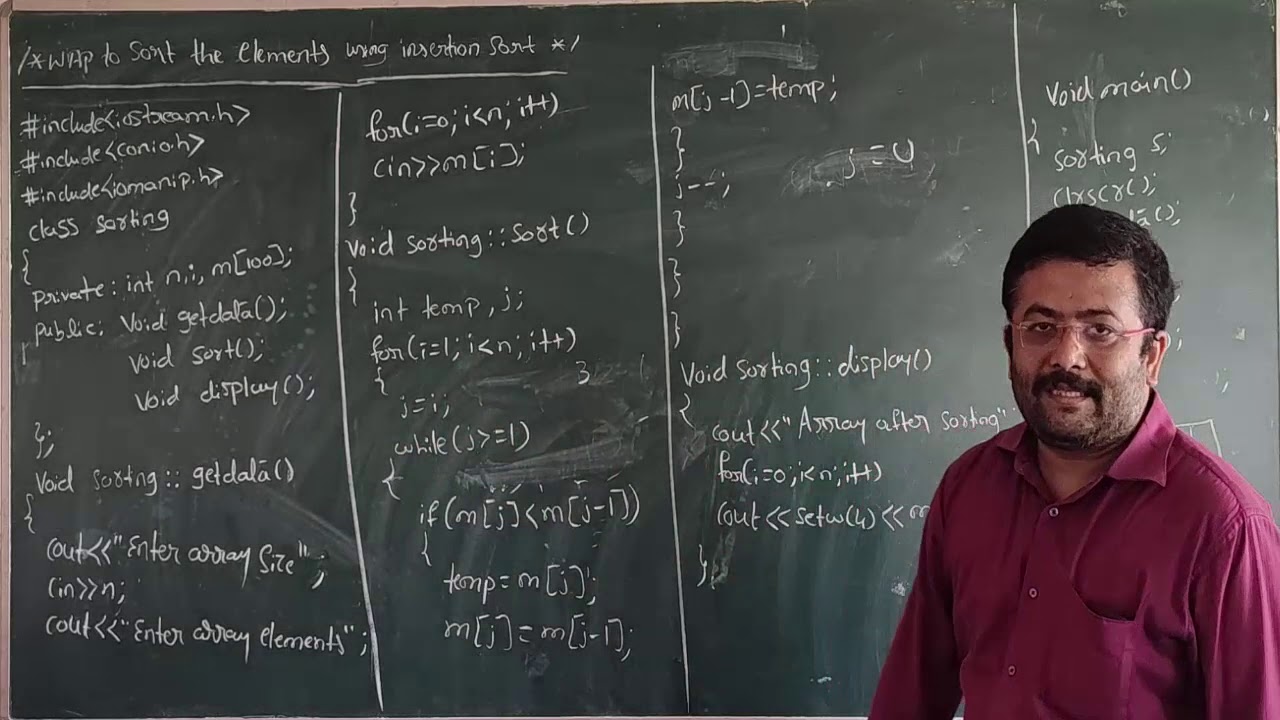 /*WAP to Sort the Elements using insertion Sort */
#include<iostream.h>
#include<conio.h>
#include<iomanip.h>
class sorting
{
private: int n,i, m[100];
public: Void getdata();
void sort();
void display();
};
Void sorting :: getdata()
{
cout<<"Enter array Size";
cin>>n;
cout<<"Enter array elements";
for(i=0; i<n; i++)
cin>>m[i];
}
Void sorting :: Sort()
{
int temp, j;
for(i=1; i<n; i++)
{
j=i;
while(j>=1)
{
if(m[j]<m[j-1])
{
temp=m[j];
m[j]=m[j-1];
m[j-1]=temp;
}
j--;
}
}
}
Void sorting :: display()
{
cout<<"Array after sorting";
for(i=0; i<n; i++)
cout<<setw(4)<<m
}
Void main()
{
sorting s;
clrscr();
();
;
;
);
j=0
3